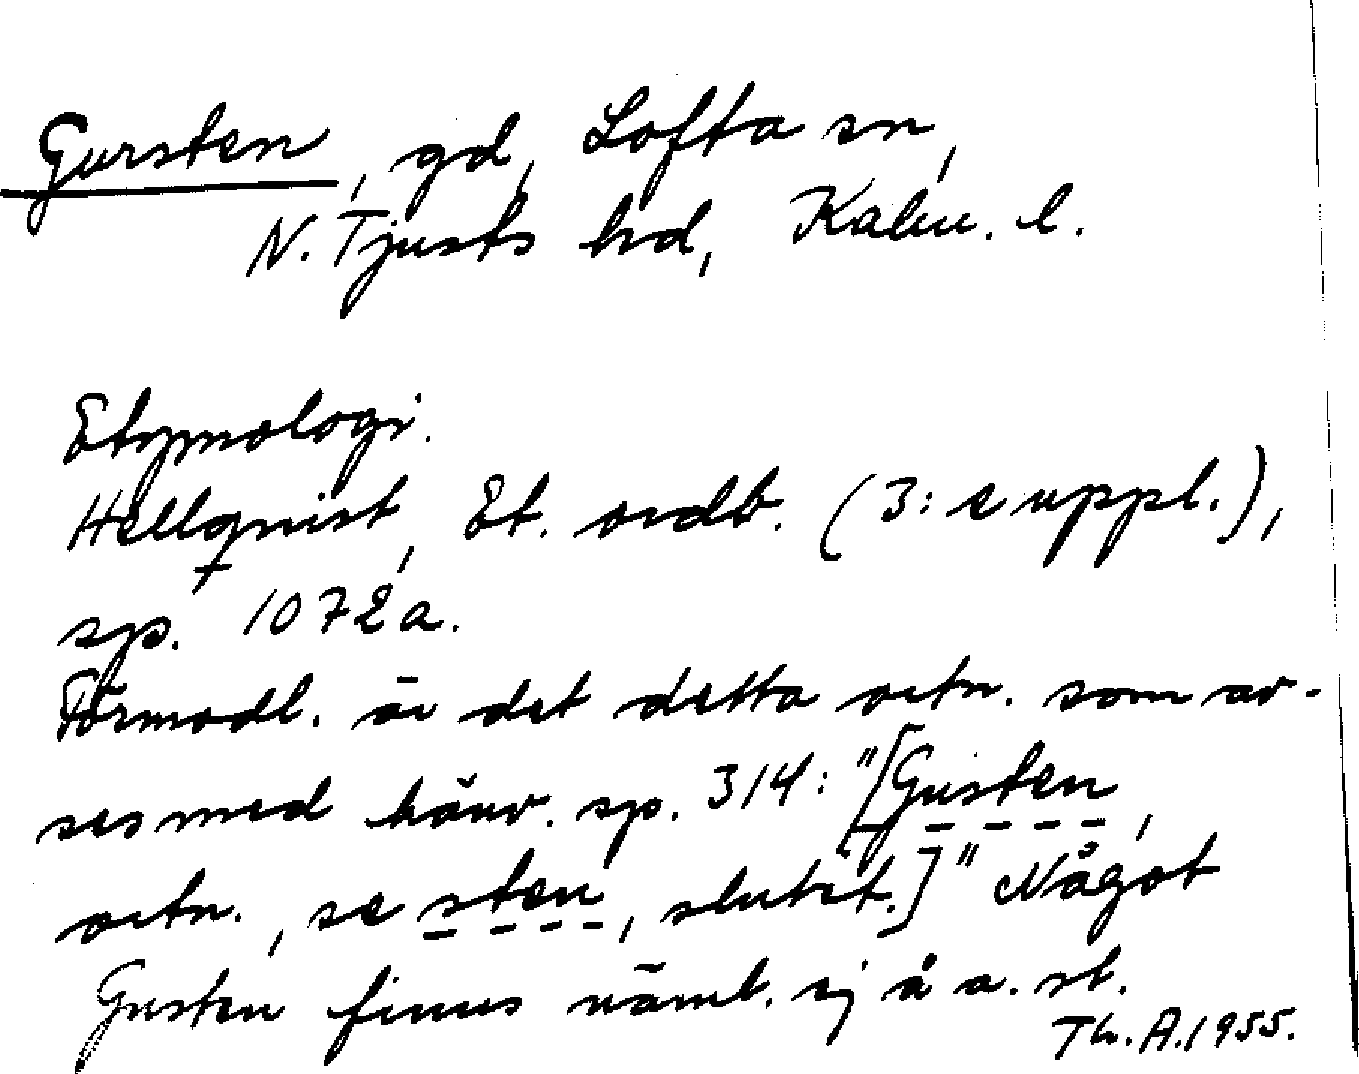 Gursten, gd, Lofta sn,
N. Tjusts hd, Kalm. l.
Etymologi.
Hellquist, Et. ordb. (3:e uppl.),
sp. 1072a.
Förmodl. är det detta ortn. som av-
ses med hänv. sp. 314: "[Gusten,
ortn., se sten, slutet.]" Något
Gusten finns näml. ej å a. st.
Th. A. 1955.